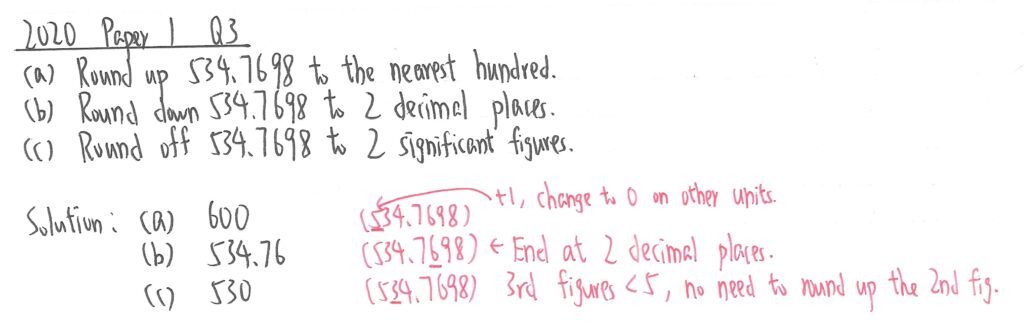 2020 Paper 1 Q3
(a) Round up 534.7698 to the nearest hundred.
(b) Round down 534.7698 to 2 decimal places.
(c) Round off 534.7698 to 2 significant figures.
Solution: (a) 600 (534.7698) +1, change to 0 on other units.
(b) 534.76 (534.7698) ← End at 2 decimal places.
(c) 530 (534.7698) 3rd figures <5, no need to round up the 2nd fig.